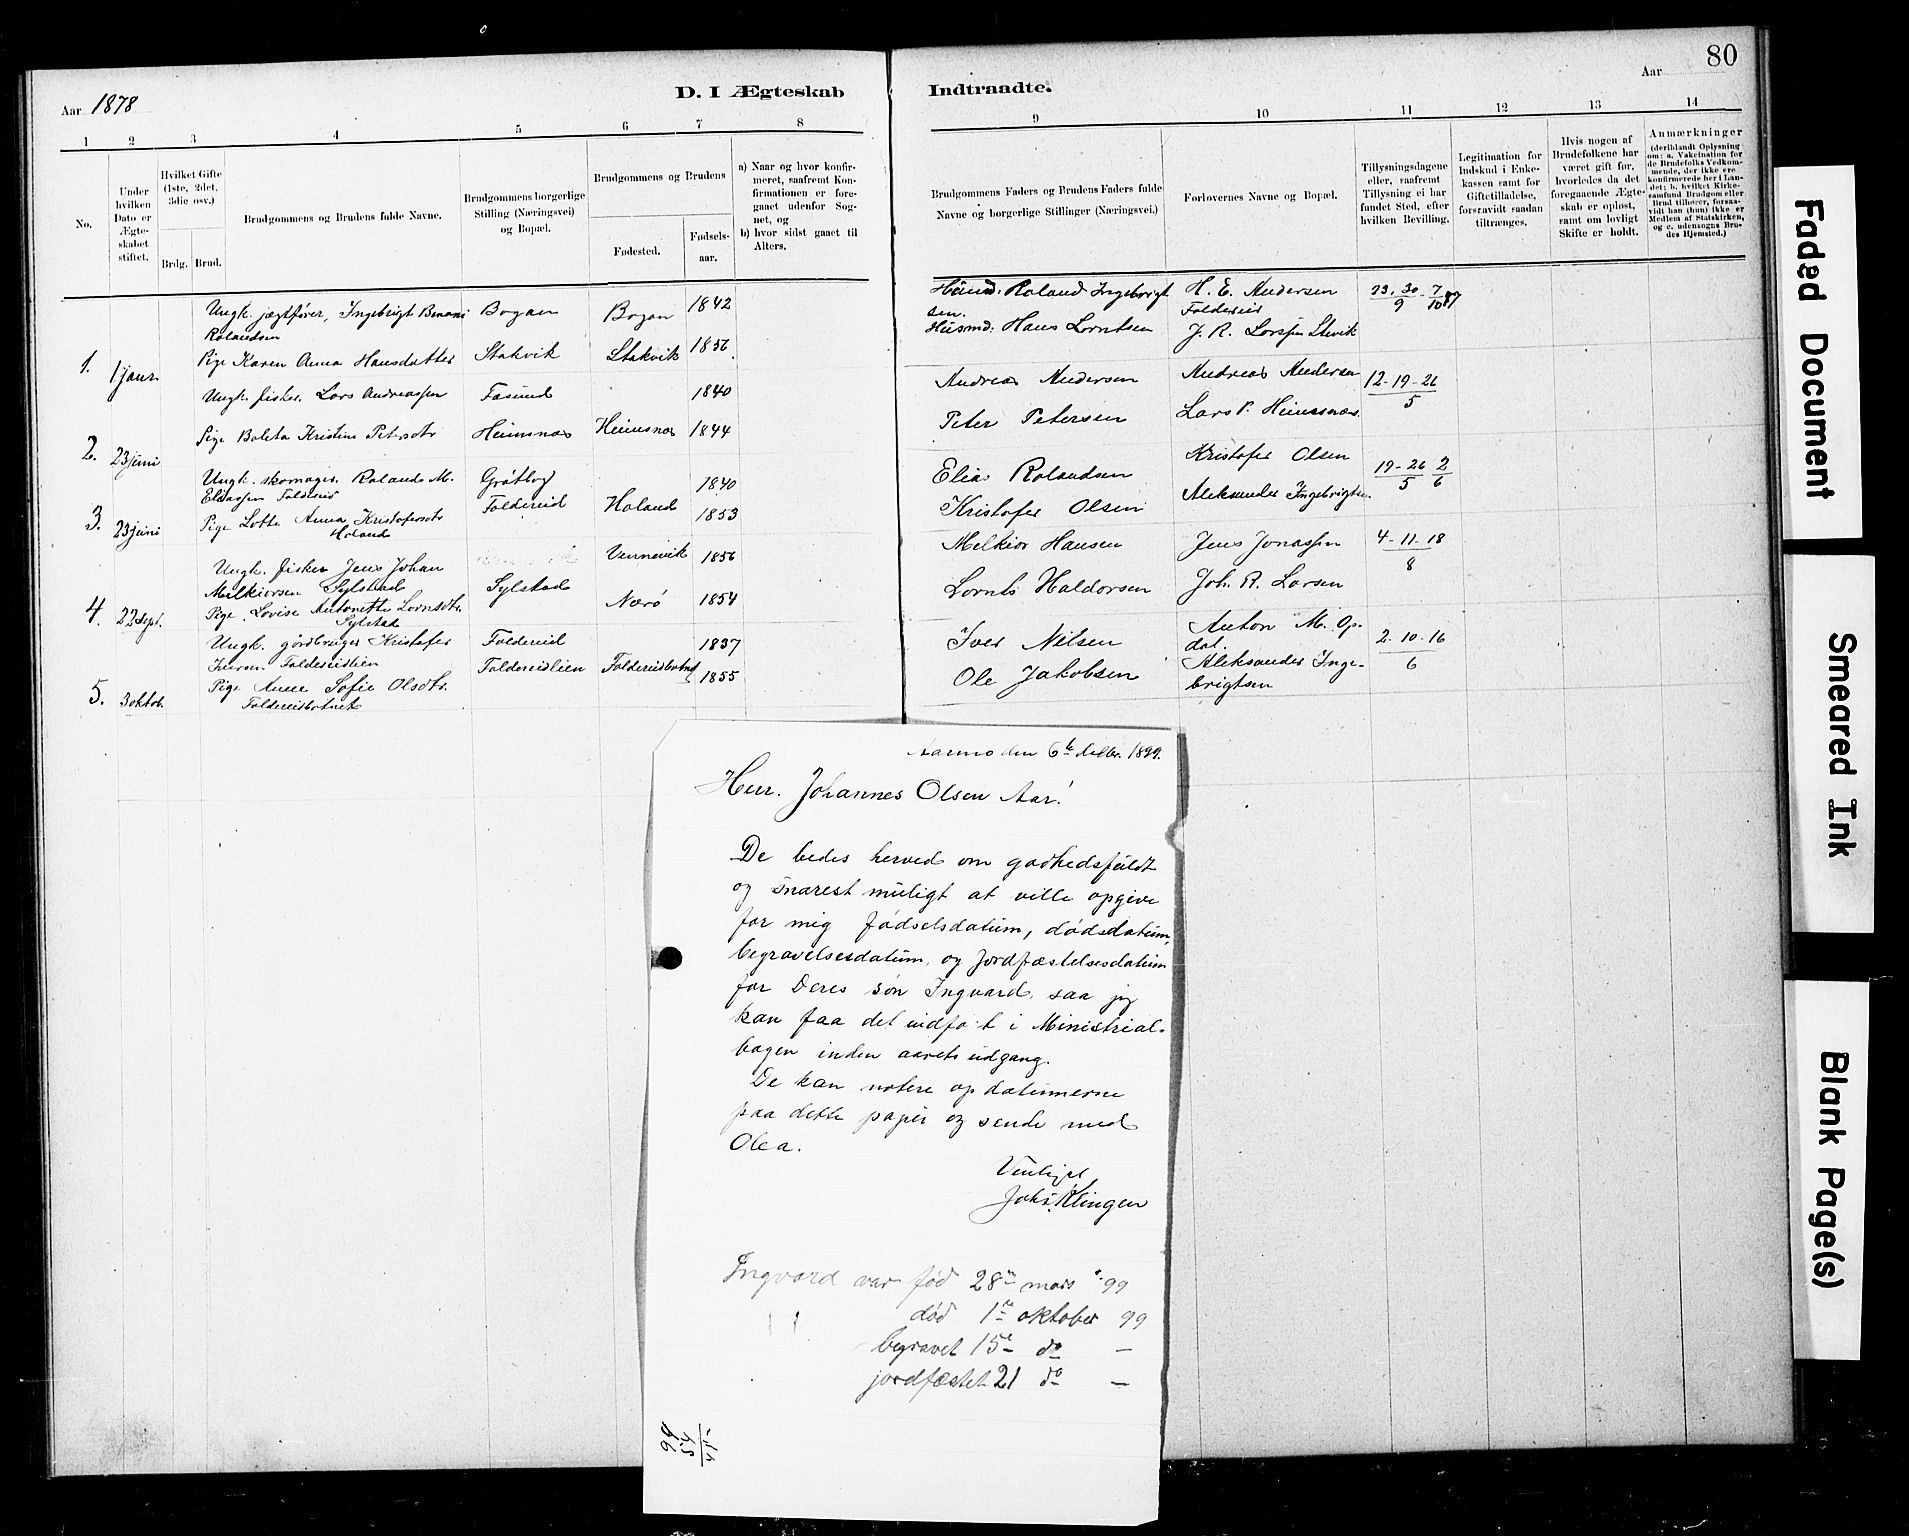 80
Aar 1878
D. I Ægteskab
Indtraadte.
Aar
1 2 3 4 5 6 7 8
9 10 11 12 13 14
No.
Under hvilken Dato er Ægteskabet stiftet.
Hvilket Gifte (1ste, 2det, 3die osv.)
Brdg. Brud.
Brudgommens og Brudens fulde Navne.
Brudgommens borgerlige Stilling (Næringsvei) og Bopæl.
Brudgommens og Brudens
Fødested.
Fødselsaar.
a) Naar og hvor konfirmeret, saafremt Konfirmationen er foregaaet udenfor Sognet, og
b) hvor sidst gaaet til Alters.
Brudgommens Faders og Brudens Faders fulde Navne og borgerlige Stillinger (Næringsvei.)
Forlovernes Navne og Bopæl.
Tillysningsdagene eller, saafremt Tillysning ei har fundet Sted, efter hvilken Bevilling.
Legitimation for Indskud i Enkekassen samt for Giftetilladelse, forsaavidt saadan tiltrænges.
Hvis nogen af Brudefolkene har været gift før, hvorledes da det foregaaende Ægteskab er opløst, samt om lovligt Skifte er holdt.
Anmærkninger
(deriblandt Oplysning om: a. Vakcination for de Brudefolks Vedkommende, der ikke ere konfirmerede her i Landet; b. hvilket Kirkesamfund Brudgom eller Brud tilhører, forsaavidt han (hun) ikke er Medlem af Statskirken, og c. udensogns Brudes Hjemsted.)
1. 1 janr.
Ungk. jægtfører, Ingebrigt
Rolandsen
Bogan Bogan 1842
Pige Karen Anna Hansdatter Stakvik Stakvik 1856.
Husmd: Roland Ingebrigt
sen.
Husmd: Hans Lorntsen
H. E. Andersen
Foldereid
J. R.
23. 30 - 7
9 10
2. 23 juni
Ungk. fisker. Lars Andreassen 1840
Pige Boleta Kristine Petersdtr Heimsnæs Heimsnæs 1844
Andreas Andersen
Peter Petersen
Andreas Andersen
Lars P. Heimsnæs.
12-19-26
5
3. 23 juni
Ungk. skomager. Rolands M.
Eliassen Foldereid
Foldereid 1840
Pige Lotte Anna Kristofersdtr
Holand
Holand 1853
Elias Rolandsen
Kristofer Olsen
Kristofer Olsen
Aleksander Ingebrigtsen.
19-26 2
5 6
4. 22 sept.
Ungk. fisker Jens Johan
Melkiorsen Sylstad
Sylstad Vennevik 1856
Pige. Lovise Antonette Lorntsdtr.
Sylstad
Nærø 1854
Melkior Hansen
Lornts Haldorsen
Jens Jonassen
Joh. R. Larsen
4-11-18
8
5. 3 oktob.
Ungk. gårdbruger Kristofer
Iversen Foldereidlien
Foldereid
Foldereidlien
1837
Pige Anne Sofie Olsdtr.
Foldereidbotnet
Foldereidbotnet 1855
Iver Nilsen
Ole Jakobsen
Anton M. Op-
dal.
Aleksander Inge-
brigtsen
2-10-16
6
den 6te decbr. 1899.
Herr. Johannes Olsen Aar!
De bedes herved om godhedsfuldt
og snarest muligt at ville opgive
for mig fødselsdatum, dødsdatum,
begravelsesdatum, og Jordfæstelsesdatum
for Deres søn Ingvard, saa jeg
kan faa det indført i Ministrial-
bogen inden aarets udgang.
De kan notere op datumerne
paa dette papir og sende med
Olea.
Venligst
Johs. Klingen
Ingvard var fød 28de mars 99
" død 1te oktober 99
begravet 15de do —
jordfæstet 21 do —
Faded Document
Smeared Ink
Blank Page(s)